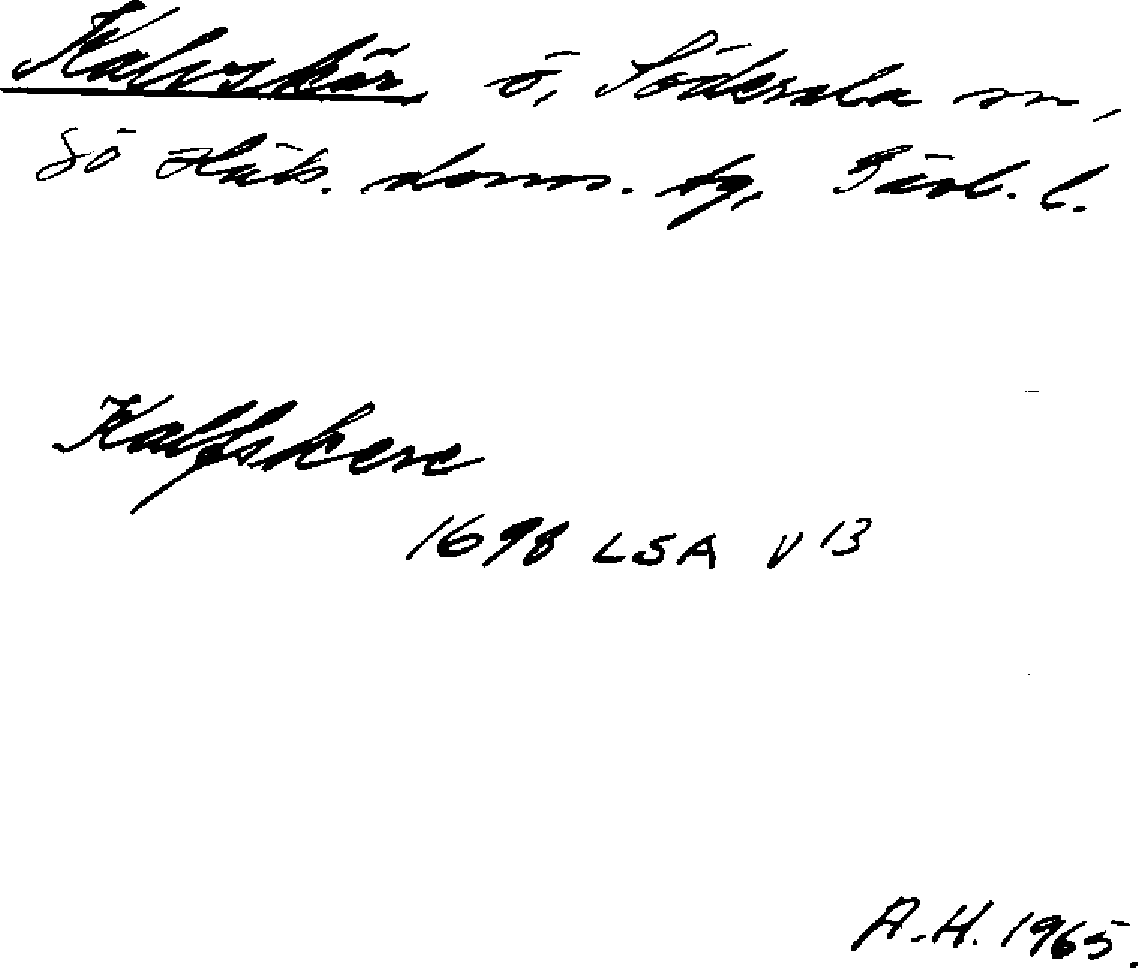 Kalvskär ö, Söderala sn,
Sö Häls. doms. tg, Gävl. l.
Kalfskere
1698 LSA V 13
A.H. 1965.